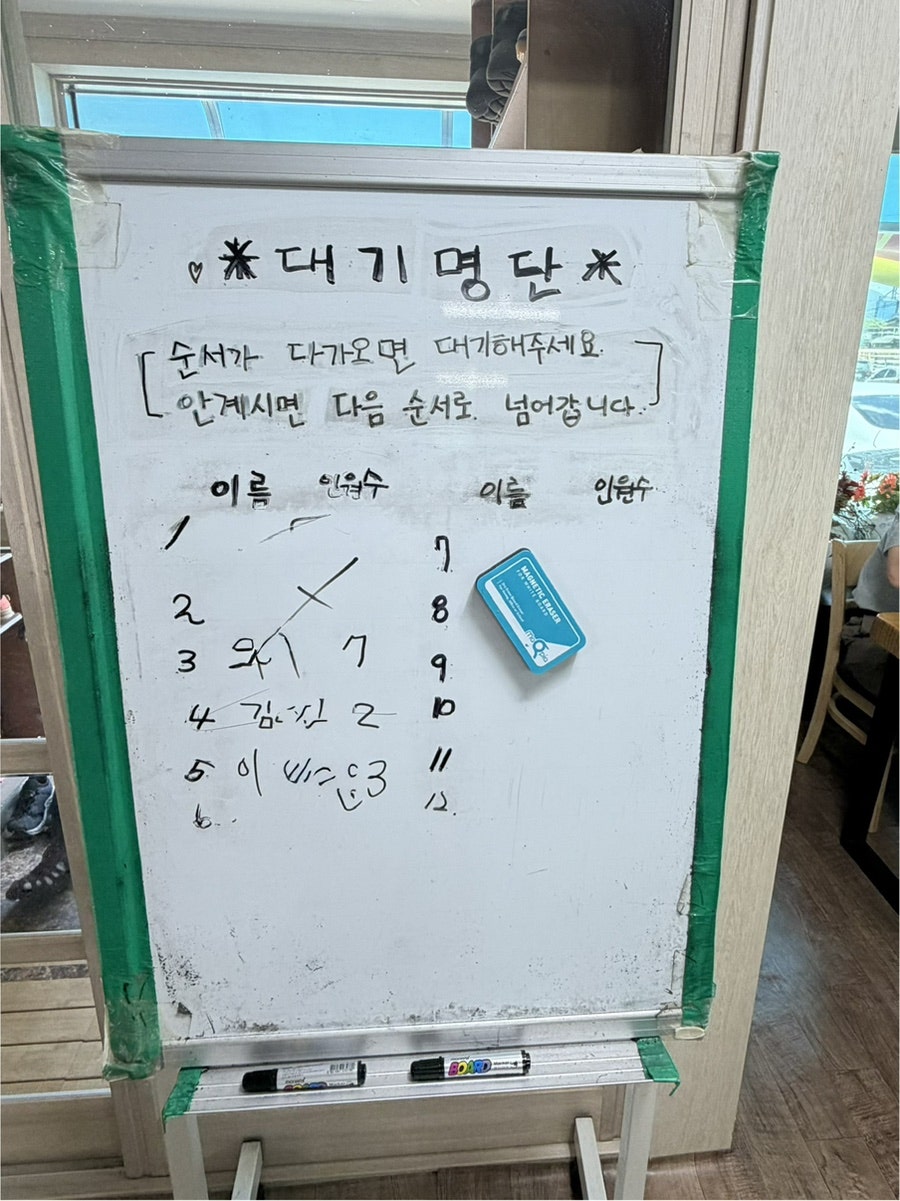 ♡ * 대기명단 *
[ 순서가 다가오면 대기해주세요. ]
[ 안계시면 다음 순서로 넘어갑니다. ]
이름 인원수 이름 인원수
1 7
2 8
3 7 9
4 2 10
5 이 3 11
6. 12.
MAGNETIC ERASER
FOR WHITE BOARD
BOARD
BOARD